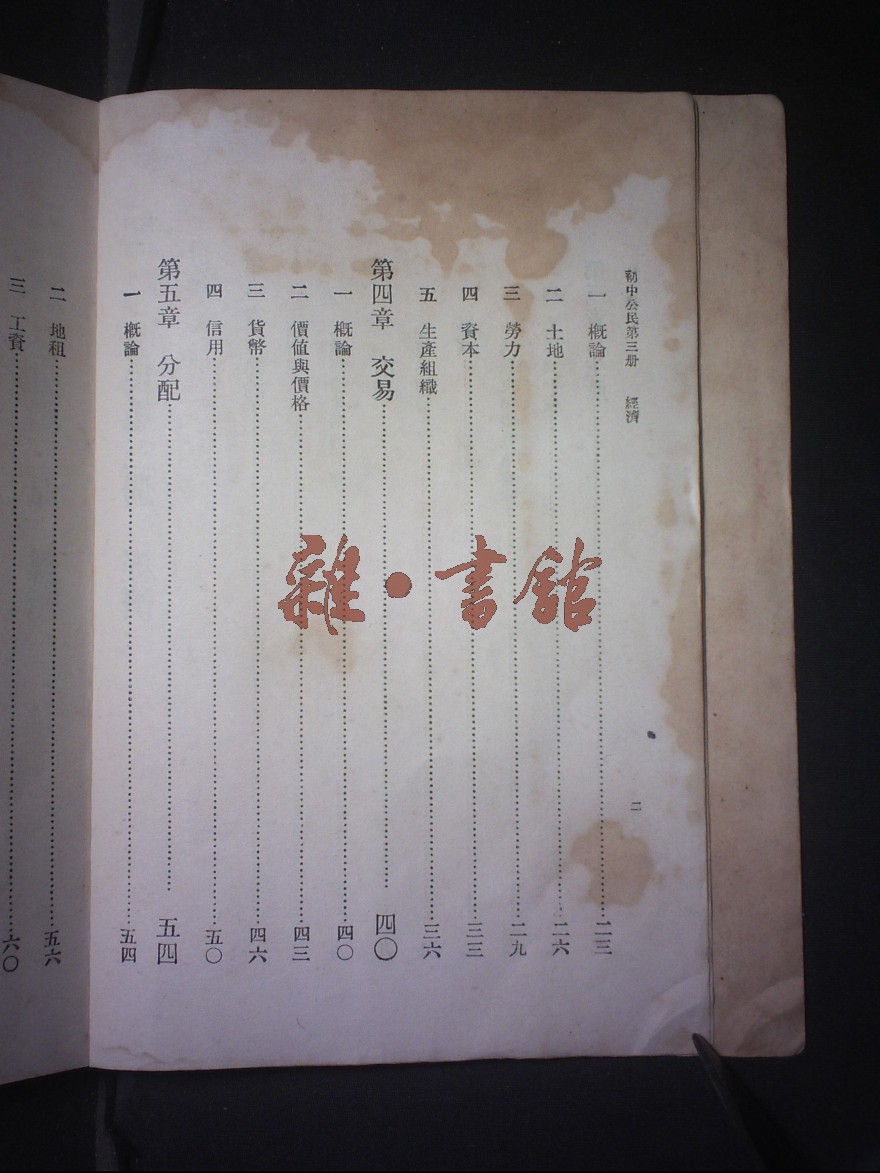 初中公民第三册　經濟
二
一　概論……二三
二　土地……二六
三　勞力……二九
四　資本……三三
五　生產組織……三六
第四章　交易……四〇
一　概論……四〇
二　價值與價格……四三
三　貨幣……四六
四　信用……五〇
第五章　分配……五四
一　概論……五四
二　地租……五六
三　工資……六〇
雜·書館